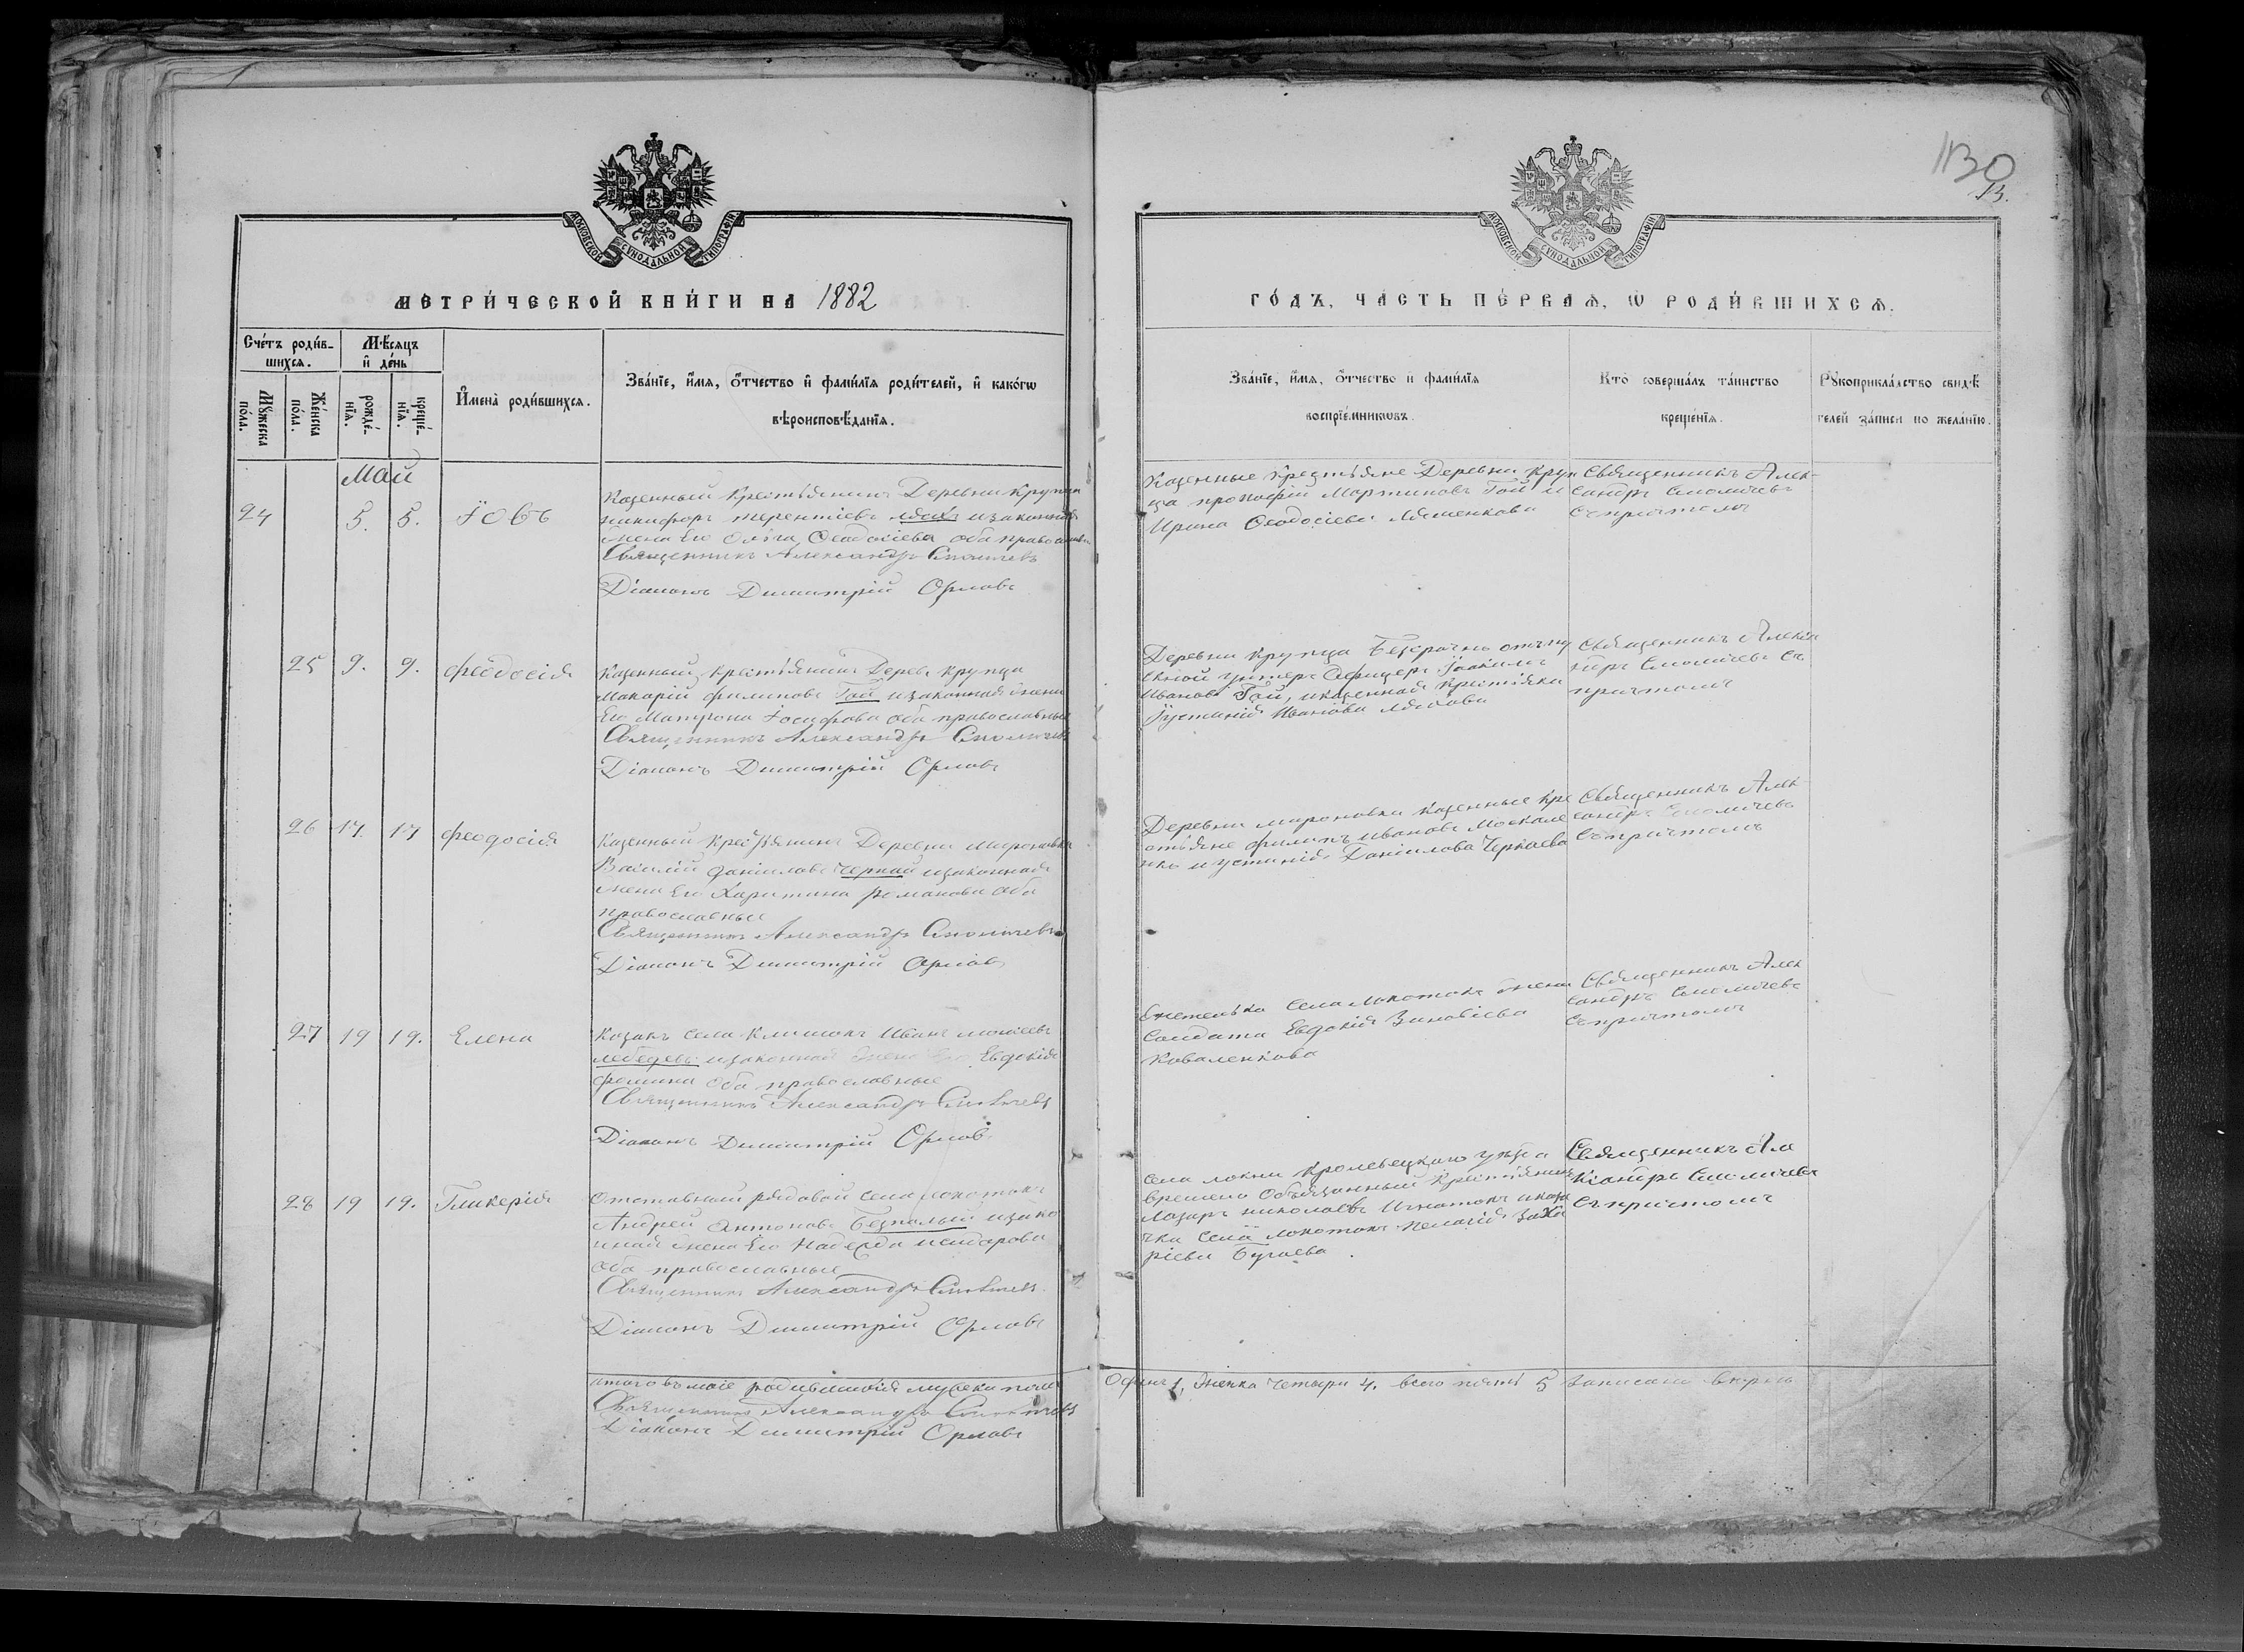 МОСКОВСКОЙ СѴНОДАЛЬНОЙ ТИПОГРАФІИ
МЕТРИ́ЧЕСКОЙ КНИ́ГИ НА 1882
Сче́тъ роди́в-
шихся.
Мѣ́сяцъ
и҆ де́нь
Мꙋ́жеска
по́ла.
Же́нска
по́ла.
рожде́-
нїѧ.
креще́-
нїѧ.
И҆мена̀ роди́вшихсѧ.
Зва́нїе, и҆́мѧ, ѻ҆́тчество и҆ фамі́лїѧ роди́телей, и҆ како́гѡ
вѣроисповѣ́данїѧ.
Май
24 5. 5. Іовъ
Казенный крестьянинъ Деревни Крупца
Никифоръ Терентіевъ Лдахъ и законная
жена его Ольга Ѳеодосіева оба православн
Священникъ Александръ
Діаконъ Димитрій Орловъ
25 9. 9. Феодосія
Казенный крестьянинъ Дерев. Крупца
Макарій Филиповъ Гой и законная жена
Его Матрона Іосифова оба православные
Священникъ Александръ
Діаконъ Димитрій Орловъ
26 17. 17 Феодосія
Казенный крестьянинъ Деревни Мироновки
Василій Даніиловъ Черкай и законная
жена Его Харитина Романова оба
православные
Священникъ Александръ
Діаконъ Димитрій Орловъ
27 19 19. Елена
Козакъ села Клишокъ Иванъ Моисеевъ
Лебедевъ и законная жена его Евдокія
Фомина оба православные
Священникъ Александръ
Діаконъ Димитрій Орловъ
28 19 19. Гликерія
Отставный рядовой села Локотокъ
Андрей Антоновъ Безпалый и зако
нная жена Его Надежда Исидорова
оба православные
Священникъ Александръ
Діаконъ Димитрій Орловъ
Итого въ маіе родившихся мужска пола
Священникъ Александръ
Діаконъ Димитрій Орловъ
130
13.
МОСКОВСКОЙ СѴНОДАЛЬНОЙ ТИПОГРАФІИ
ГО́ДЪ, ЧА́СТЬ ПЕ́РВАѦ, Ѡ РОДИ́ВШИХСѦ.
Зва́нїе, и҆́мѧ, ѻ҆́тчество и҆ фамі́лїѧ
воспрїе́мникѡвъ.
Кто̀ соверша́лъ та́инство
креще́нїѧ.
Рꙋкоприкла́дство свидѣ́
телей за́писи по жела́нїю.
Казенные крестьяне Деревни Круп
ца Прокофій Мартиновъ Гой и
Ирина Ѳеодосіева
Священникъ Алек
сандръ
съ причтомъ
Деревни Крупца Безсрочно отпу
скной унтеръ Офицеръ Іоакимъ
Ивановъ Гой, и казенная крестьянка
Іустинія Иванова
Священникъ Алексан
дръ съ
причтомъ
Деревни Мироновки казенные кре
стьяне Филипъ Ивановъ Москале
нко и Устинія Даніилова Черкаева
Священникъ Алек
сандръ
съ причтомъ
Жителька села Локотокъ жена
Солдата Евдокія Зиновіева
Коваленкова
Священникъ Алек
сандръ
съ причтомъ
Села Локни Кролевецкаго уезда
временно обязанный крестьянинъ
Лазаръ Николаевъ Игнатокъ и каза
чка села Локотокъ Пелагія Заха
ріева Бугаева.
Священникъ Але
ксандръ
съ причтомъ
Одинъ 1, женска четыри 4. всего пять 5 записано верно